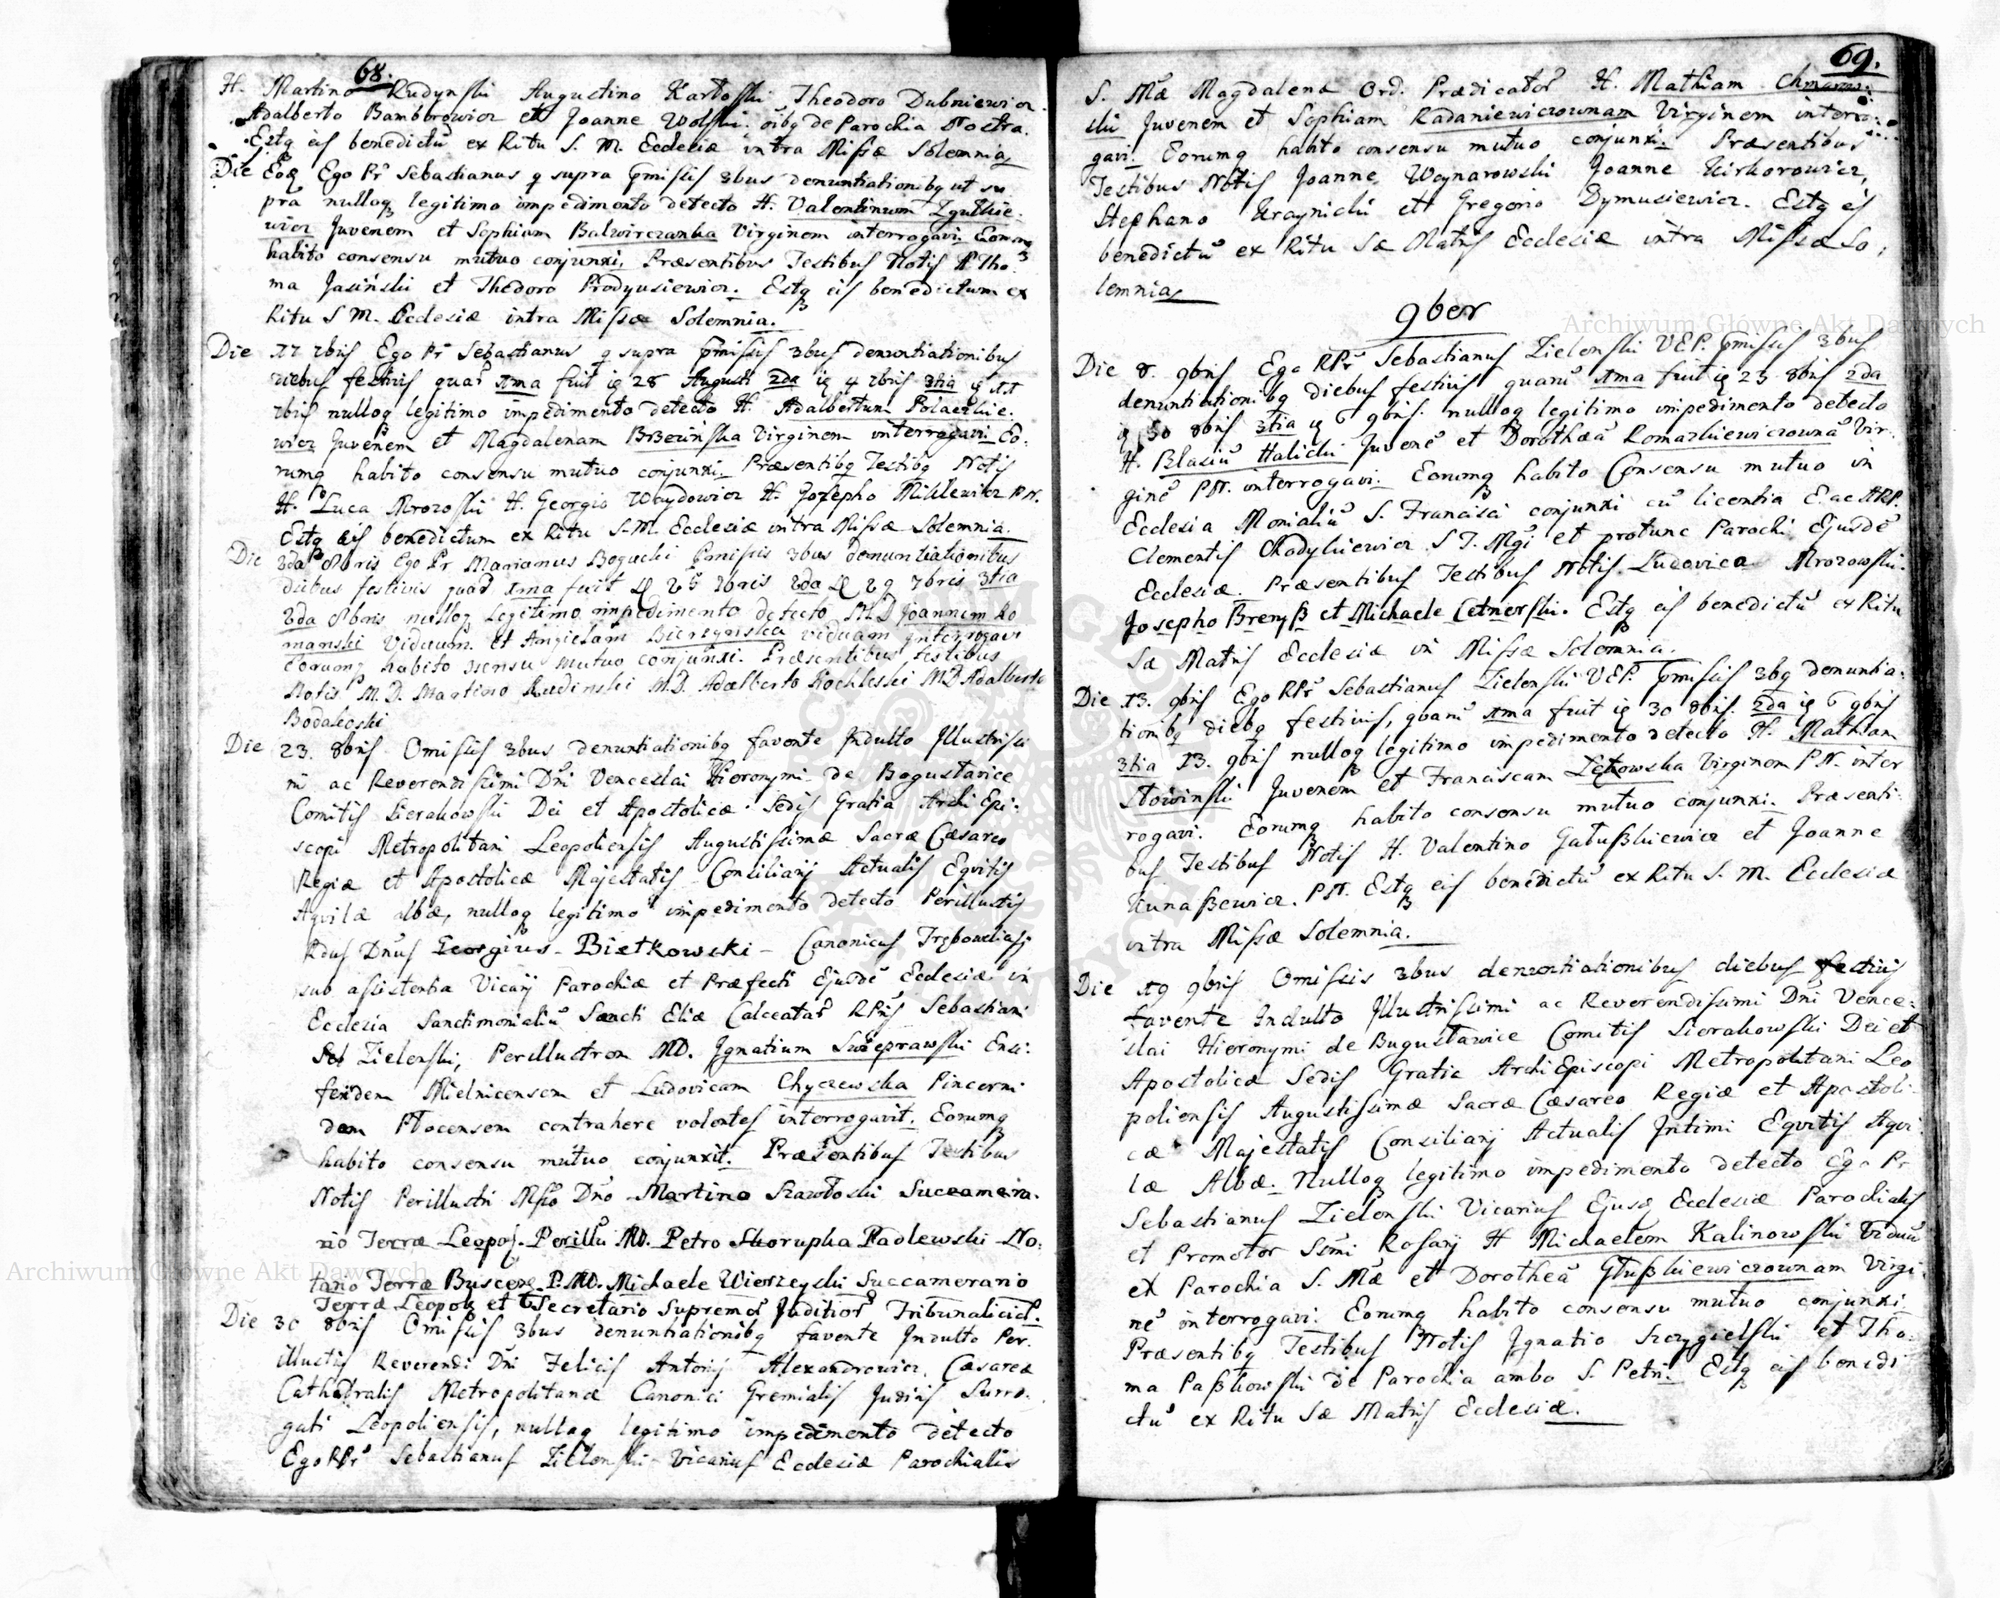 68.
H. Martino Rudynski Augustino Kartoski Theodoro Dubniewicz
Adalberto Bambrowicz et Joanne Wolski oibq de Parochia Nostra.
Estq eis benedictū ex Ritu S. M. Ecclesiæ intra Missæ Solemnia
Die Eoq Ego Pr Sebastianus q supra pmissis 3bus denuntiationibq ut su
pra nulloq legitimo impedimento detecto H. Valentinum Zgutkie:
wicz Juvenem et Sophiam Balwirczanka Virginem interrogavi Eorumq
habito consensu mutuo conjunxi, Præsentibus Testibus Notis H Tho:
ma Jasiński et Theodoro Prodyusiewicz. Estq eis benedictum ex
Ritu S M. Ecclesiæ intra Missæ Solemnia.
Die 17 7bris Ego Pr Sebastianus q supra pmissis 3bus denuntiationibus
diebus festivis quar 1ma fuit iq 28 Augusti 2da iq 4 7bris 3tia iq 11
7bris nulloq legitimo impedimento detecto H. Adalbertum Polaczkie:
wicz Juvenem et Magdalenam Brzezińska Virginem interrogavi Eo:
rumq habito consensu mutuo conjunxi. Præsentibq Testibq Notis
H. Luca Mrozoski H. Georgio Woydowicz H. Jozepho Miklewicz PN.
Estq eis benedictum ex Ritu S. M. Ecclesiæ intra Missæ Solemnia.
Die 2da 8bris Ego Pr Marianus Bogucki pmissis 3bus denuntiationibus
diebus festivis quar 1ma fuit q 25 7bris 2da q 29 7bris 3tia
2da 8bris nulloq legitimo impedimento detecto M.D Joannem Ro
manski Viduum et Angielam Bierzynska viduam interrogavi
Eorumq habito nsensu mutuo conjunxi. Præsentibus testibus
Notis M.D. Martino Rudinski M.D. Adalberto Kochleski M.D Adalberto
Bodaleoski
Die 23. 8bris Omissis 3bus denuntiationibq favente Indulto Illustrissi
mi ac Reverendissimi Dni Venceslai Hieronymi de Bogustawice
Comitis Sierakowski Dei et Apostolicæ Sedis Gratia Archi Epi:
scopi Metropolitani Leopoliensis Augustissimæ Sacræ Cæsareo
Regiæ et Apostolicæ Majestatis Consiliarij Actualis Equitis
Aquilæ albæ, nulloq legitimo impedimento detecto Perillustris
Rdus Dnus Georgius Biełkowski Canonicus Trębowliasis
sub assistentia Vicarij Parochiæ et Præfecti Ejusdē Ecclesiæ in
Ecclesia Sanctimonialiū Sancti Eliæ Calceatar RPris Sebastiani
Zielenski, Perillustrem MD. Ignatium Suzeprawski Ensi:
feridem Mielnicensem et Ludovicam Chyczewska Pincerni
dem Płocensem contrahere volentes interrogavit. Eorumq
habito consensu mutuo conjunxit. Præsentibus Testibus
Notis Perillustri Mfio Dno Martino Szawłoski Succamera.
rio Terræ Leopol. Perillu MD. Petro Skorupka Padlewski No:
tario Terræ Buscens P.MD. Michaele Wierzeyski Succamerario
Terræ Leopol et Secretario Supremor Juditior Tribunaliciel.
Die 30 8bris Omissis 3bus denuntiationibq favente Indulto Per.
illustris Reverendi Dni Felicis Antonij Alexandrowicz Cæsareæ
Cathedralis Metropolitanæ Canonici Gremialis Judicis Surro.
gati Leopoliensis, nulloq legitimo impedimento detecto
Ego RPr Sebastianus Zielenski Vicarius Ecclesiæ Parochialis
69.
S. Mæ Magdalenæ Ord. Prædicator H. Mathiam Chmarzi:
ski Juvenem et Sophiam Radaniewiczownam Virginem interro:
gavi. Eorumq habito consensu mutuo conjunxi. Præsentibus
Testibus Notis Joanne Woynarowski Joanne Kirkorowicz,
Stephano Kraynicki et Gregorio Dymusiewicz. Estq eis
benedictū ex Ritu Sæ Matris Ecclesiæ intra Missæ So:
lemnia
9ber
Die 8. 9bris Ego RPr Sebastianus Zielenski VEP. pmissis 3bus
denuntiationibq diebus festivis quarū 1ma fuit iq 23 8bris 2da
iq 30 8bris 3tia iq 6 9bris nulloq legitimo impedimento detecto
H. Blasiū Halicki Juvenē et Dorotheā Romazkiewiczownā Vir:
ginē PN. interrogavi. Eorumq habito Consensu mutuo in
Ecclesia Monialiū S. Francisci conjunxi cū licentia E ac ARP.
Clementis Chodykiewicz S T. Mgi et protunc Parochi Ejusdē
Ecclesiæ. Præsentibus Testibus Notis Ludovico Mrozowski
Josepho Breyß et Michaele Cetnerski. Estq eis benedictū ex Ritu
Sæ Matris Ecclesiæ in Missæ Solemnia.
Die 13. 9bris Ego RPr Sebastianus Zielenski VEP. pmissis 3bq denuntia:
tionibq diebq festivis, quarū 1ma fuit iq 30 8bris 2da iq 6 9bris
3tia 13. 9bris nulloq legitimo impedimento detecto H. Mathiam
Słowinski Juvenem et Franciscam Zętkowska Virginem PN. inter
rogavi. Eorumq habito consensu mutuo conjunxi. Præsenti:
bus Testibus Notis H. Valentino Gałußkiewicz et Joanne
Kunaßewicz. PN. Estq eis benedictū ex Ritu S. M. Ecclesiæ
intra Missæ Solemnia.
Die 19 9bris Omissis 3bus denuntiationibus diebus festivis
favente Indulto Illustrissimi ac Reverendissimi Dni Vence:
slai Hieronymi de Bugustawice Comitis Sierakowski Dei et
Apostolicæ Sedis Gratia ArchiEpiscopi Metropolitani Leo
poliensis Augustissimæ Sacræ Cæsareo Regiæ et Apostoli
cæ Majestatis Consiliarij Actualis Intimi Equitis Aqui:
læ Albæ. Nulloq legitimo impedimento detecto Ego Pr
Sebastianus Zielenski Vicarius Ejusq Ecclesiæ Parochialis
et Promotor Ssmi Rosarij H Michaelem Kalinowski Viduū
ex Parochia S. Mæ et Dorotheā Głußkiewiczownam Virgi:
nē interrogavi. Eorumq habito consensu mutuo conjunxi.
Præsentibq Testibus Notis Ignatio Szczygielski et Tho:
ma Paßkowski de Parochia ambo S. Petri. Estq eis benedi
ctū ex Ritu Sæ Matris Ecclesiæ.
Archiwum Główne Akt Dawnych
Archiwum Główne Akt Dawnych